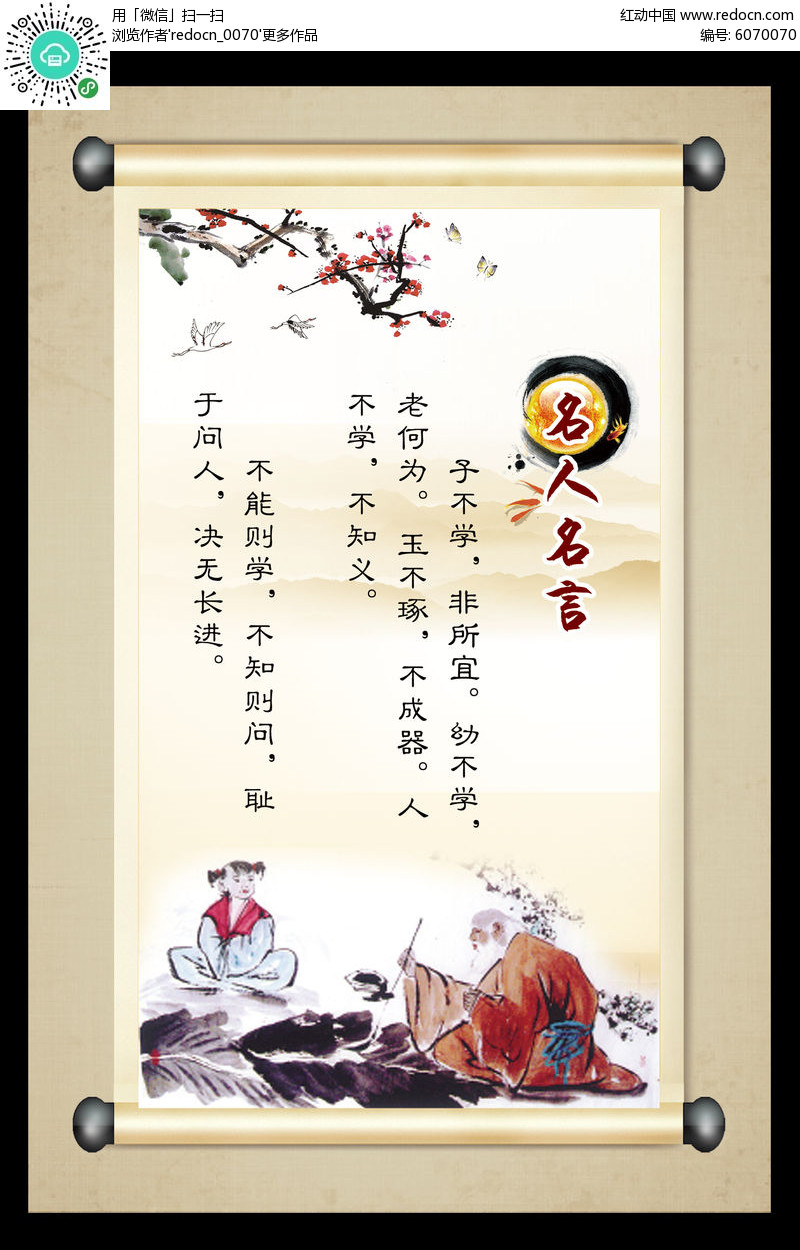 用「微信」扫一扫
浏览作者'redocn_0070'更多作品
红动中国 www.redocn.com
编号: 6070070
名人名言
子不学，非所宜。幼不学，
老何为。玉不琢，不成器。人
不学，不知义。
不能则学，不知则问，耻
于问人，决无长进。